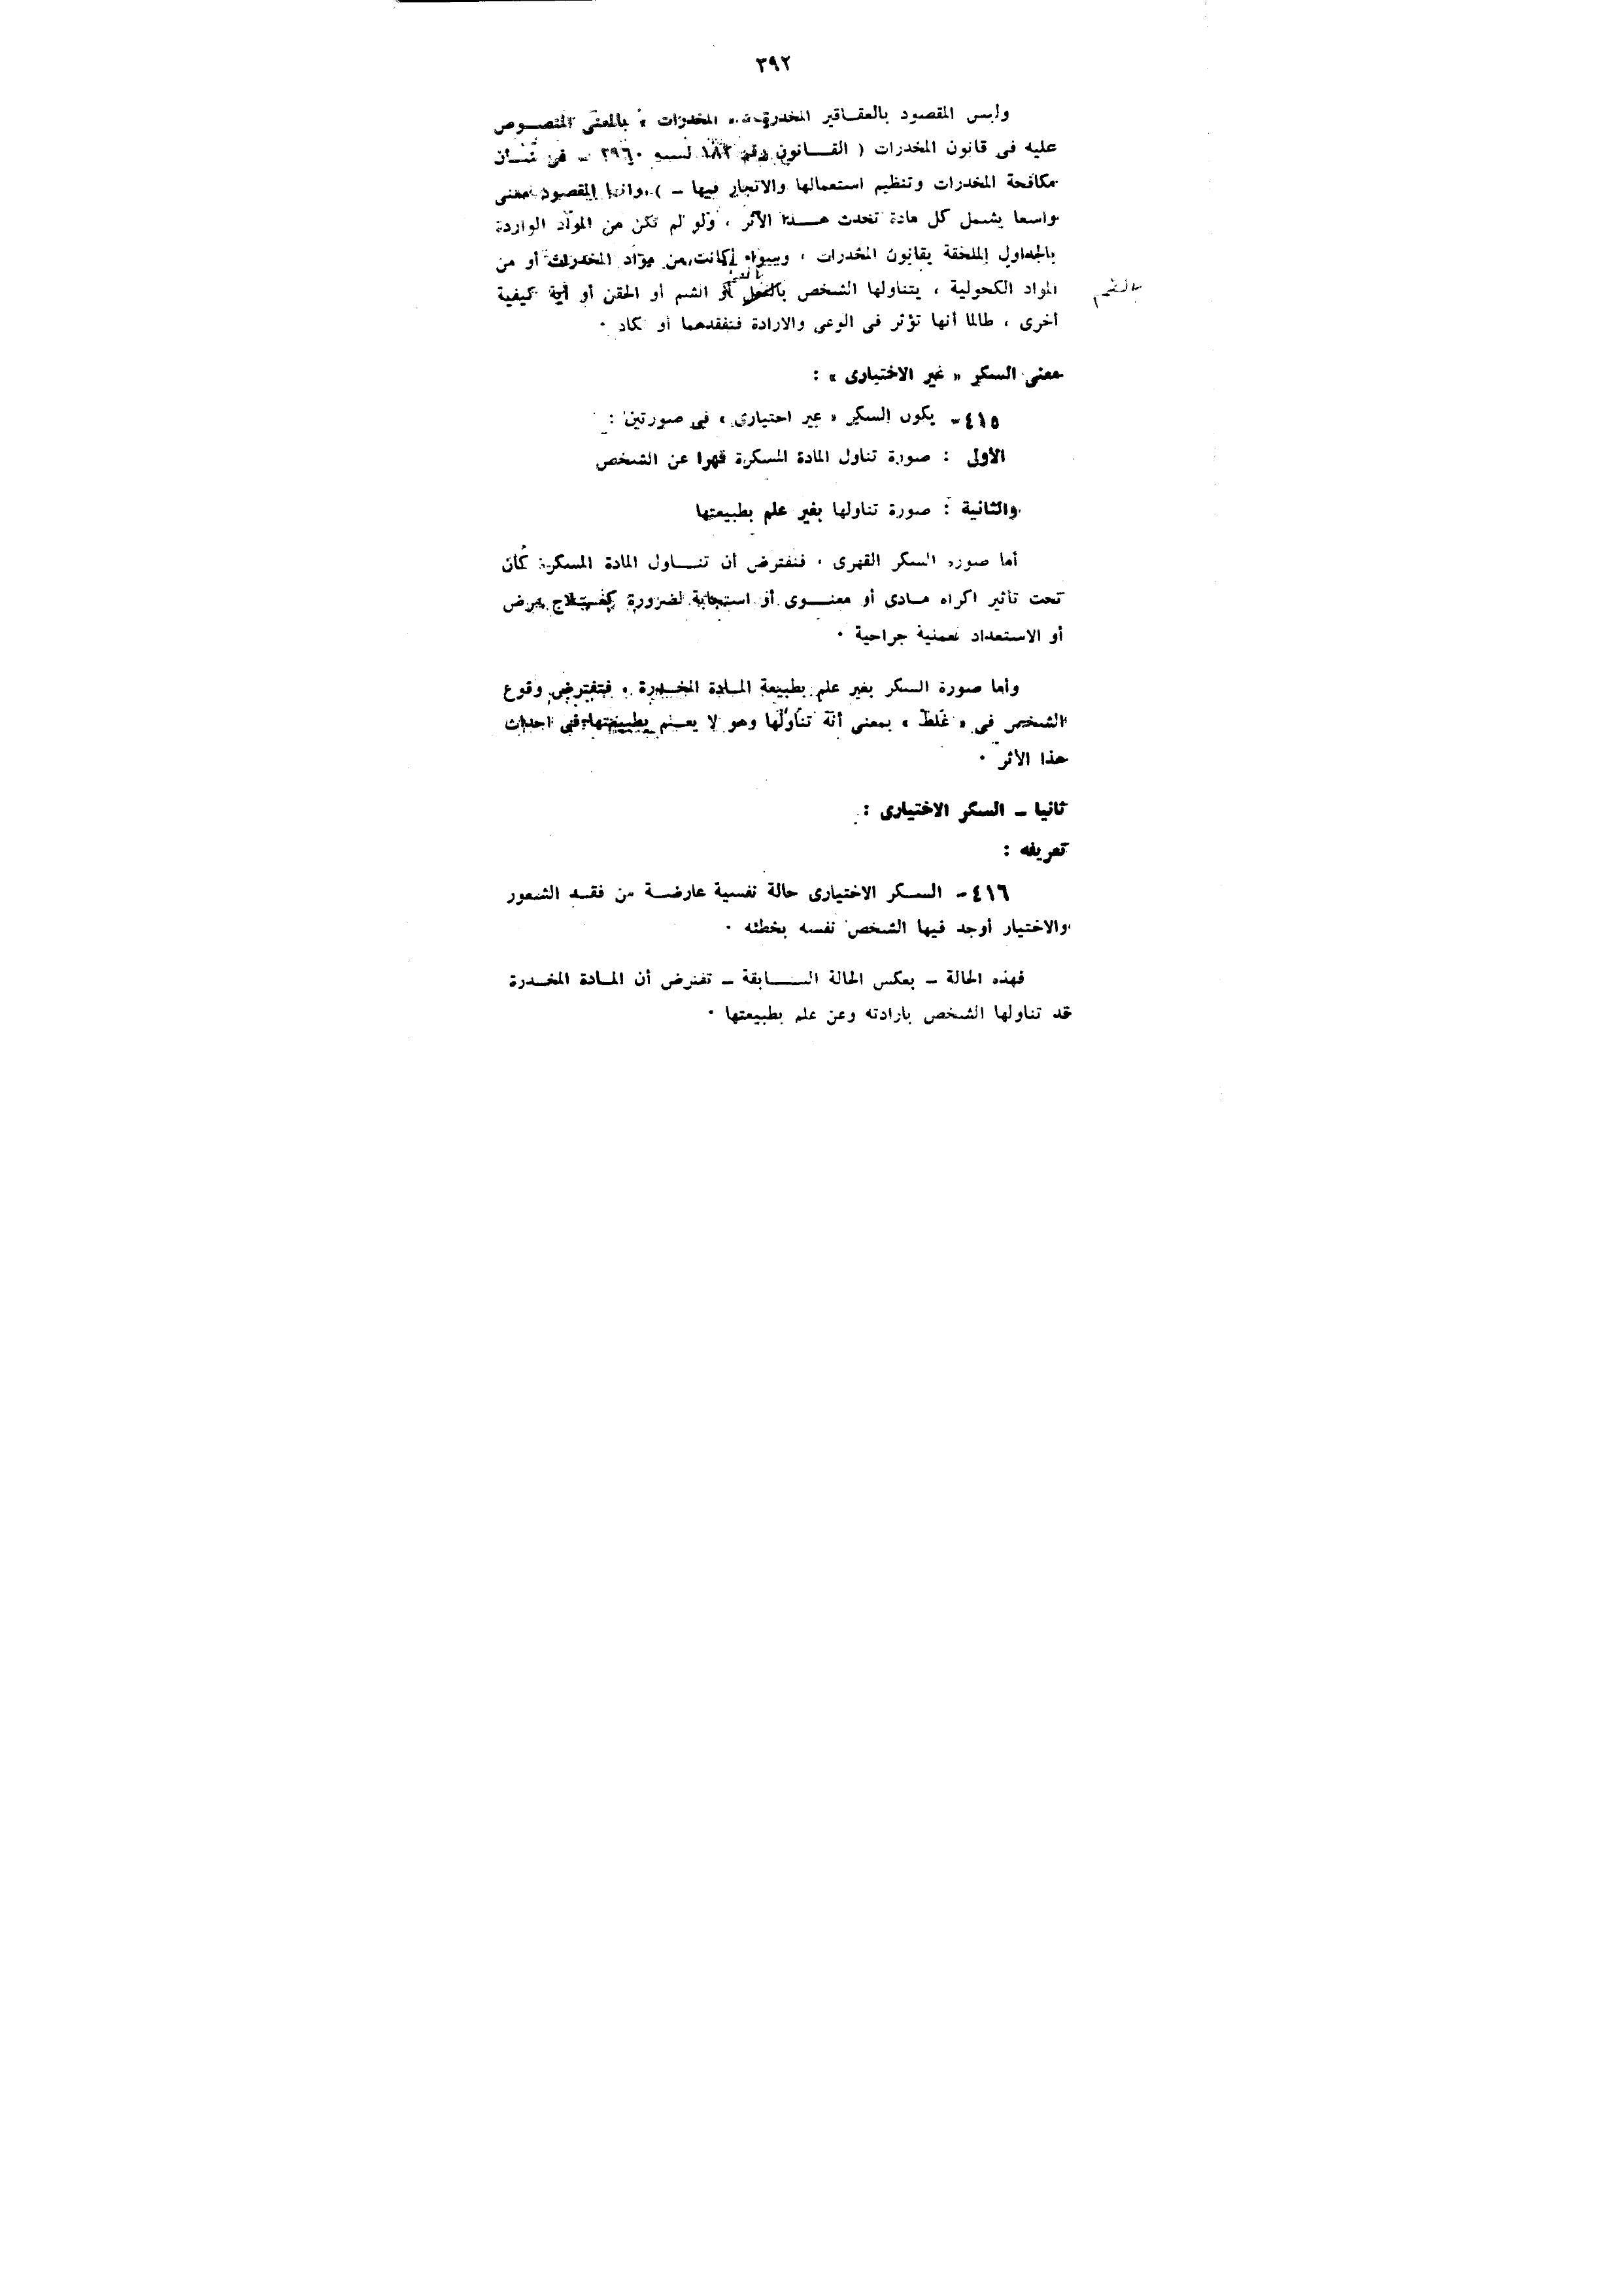 ٣٩٢
وليس المقصود بالعقاقير المخدرة « المخدرات » بالمعنى المنصوص
عليه فى قانون المخدرات ( القانون رقم ١٨٢ لسنة ١٩٦٠ ــ فى شأن
مكافحة المخدرات وتنظيم استعمالها والاتجار فيها ــ ) وانما المقصود معنى
واسعا يشمل كل مادة تحدث هذا الأثر ، ولو لم تكن من المواد الواردة
بالجداول الملحقة بقانون المخدرات ، وسواء أكانت من مواد المخدرات أو من
المواد الكحولية ، يتناولها الشخص بالفم أو الشم أو الحقن أو أية كيفية
بالفم
أخرى ، طالما أنها تؤثر فى الوعى والارادة فتفقدهما أو تكاد ٠
معنى السكر « غير الاختيارى » :
٤١٥ - يكون السكر « غير اختيارى » فى صورتين :
الأولى : صورة تناول المادة المسكرة قهرا عن الشخص
والثانية : صورة تناولها بغير علم بطبيعتها
أما صورة السكر القهرى ، فتفترض أن تناول المادة المسكرة كان
تحت تأثير اكراه مادى أو معنوى أو استجابة لضرورة كعلاج مرض
أو الاستعداد لعملية جراحية ٠
وأما صورة السكر بغير علم بطبيعة المادة المخدرة ، فتفترض وقوع
الشخص فى « غلط » بمعنى أنه تناولها وهو لا يعلم بطبيعتها فى احداث
هذا الأثر ٠
ثانيا ــ السكر الاختيارى :
تعريفه :
٤١٦ - السكر الاختيارى حالة نفسية عارضة من فقد الشعور
والاختيار أوجد فيها الشخص نفسه بخطئه ٠
فهذه الحالة ــ بعكس الحالة السابقة ــ تفترض أن المادة المخدرة
قد تناولها الشخص بارادته وعن علم بطبيعتها ٠